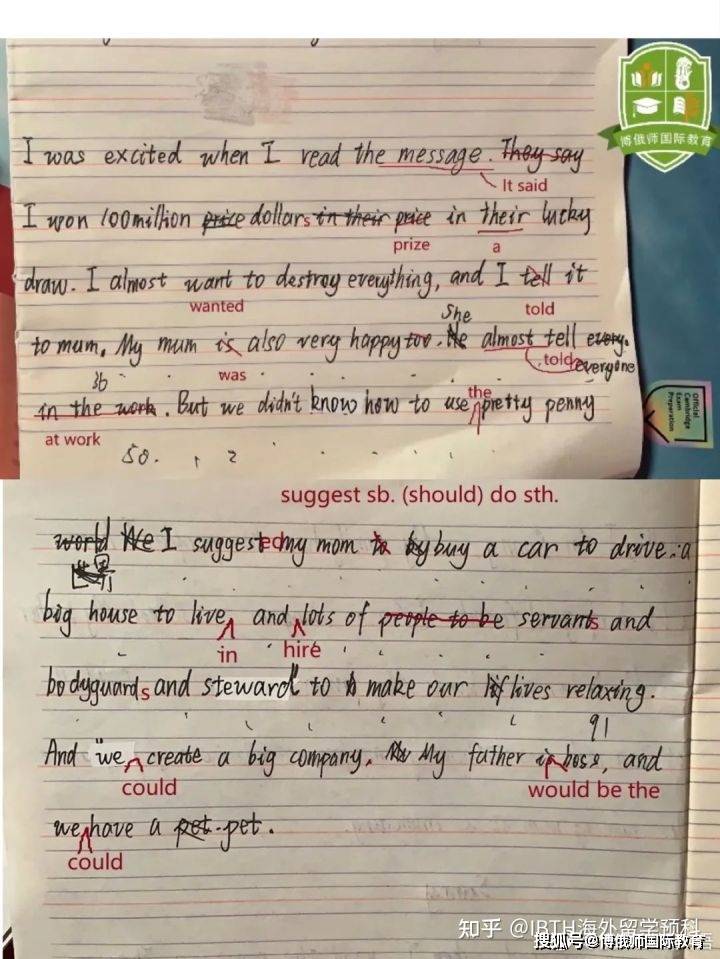 博俄师国际教育
I was excited when I read the message. They say
It said
I won 100 million price dollars in their price in their lucky
prize a
draw. I almost want to destroy everything, and I tell it
wanted told
She
to mum. My mum is also very happy too. He almost tell every.
was told everyone
36
in the work. But we didn't know how to use the pretty penny
at work
50.
Official Cambridge Exam Preparation
suggest sb. (should) do sth.
world We I suggested my mom to by buy a car to drive. a
big house to live, and lots of people to be servants and
in hire
bodyguards and steward" to make our lif lives relaxing.
91
And "we create a big company. My father is boss, and
could would be the
we have a pet. pet.
could
知乎 @IBTH海外留学预科
搜狐号@博俄师国际教育